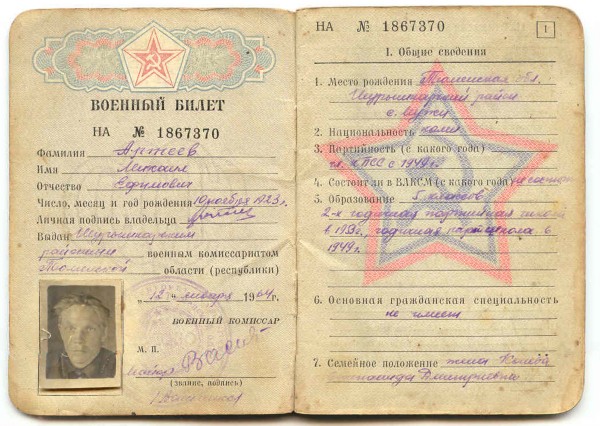 ВОЕННЫЙ БИЛЕТ
НА № 1867370
Фамилия Артеев
Имя Михаил
Отчество Ефимович
Число, месяц и год рождения 10 ноября 1923 г.
Личная подпись владельца
Выдан Шурышкарским
районным военным комиссариатом
Тюменской области (республики)
„12“ января 1964 г.
ВОЕННЫЙ КОМИССАР
М. П.
майор
(звание, подпись)
НА № 1867370
1
I. Общие сведения
1. Место рождения Тюменская обл.
Шурышкарский район
с. Мужи
2. Национальность коми
3. Партийность (с какого года)
чл. КПСС с 1949 г.
4. Состоит ли в ВЛКСМ (с какого года) не состоит
5. Образование 5 классов
2-х годичная партийная школа
в 1953г. годичная партшкола в
1949 г.
6. Основная гражданская специальность
не имеет
7. Семейное положение жена
Дмитриевна